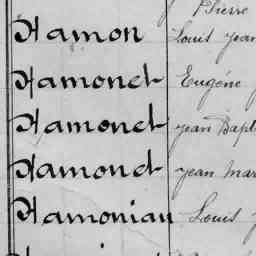 Pierre
Hamon Louis Jean
Hamonet Eugéne
Hamonet Jean Bapt
Hamond Jean Mar
Hamonian Louis J